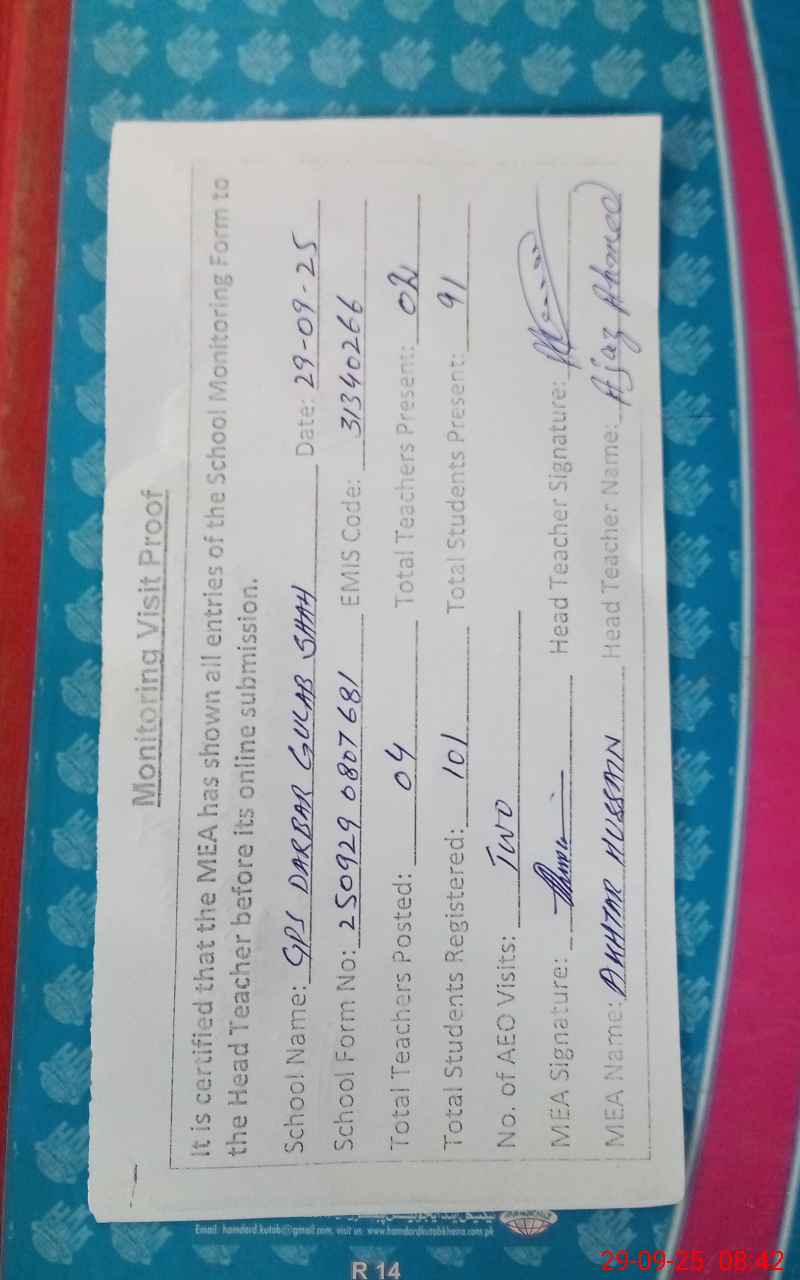 Monitoring Visit Proof
It is certified that the MEA has shown all entries of the School Monitoring Form to
the Head Teacher before its online submission.
School Name: GPS DARBAR GULAB SHAH Date: 29-09-25
School Form No: 250929 0807681 EMIS Code: 31340266
Total Teachers Posted: 04 Total Teachers Present: 02
Total Students Registered: 101 Total Students Present: 91
No. of AEO Visits: TWO
MEA Signature: Head Teacher Signature:
MEA Name: AKHTAR HUSSAIN Head Teacher Name: Ajaz Ahmed
Email: hamdard.kutab@gmail.com, visit us: www.hamdardkutabkhana.com.pk
R 14
29-09-25 08:42